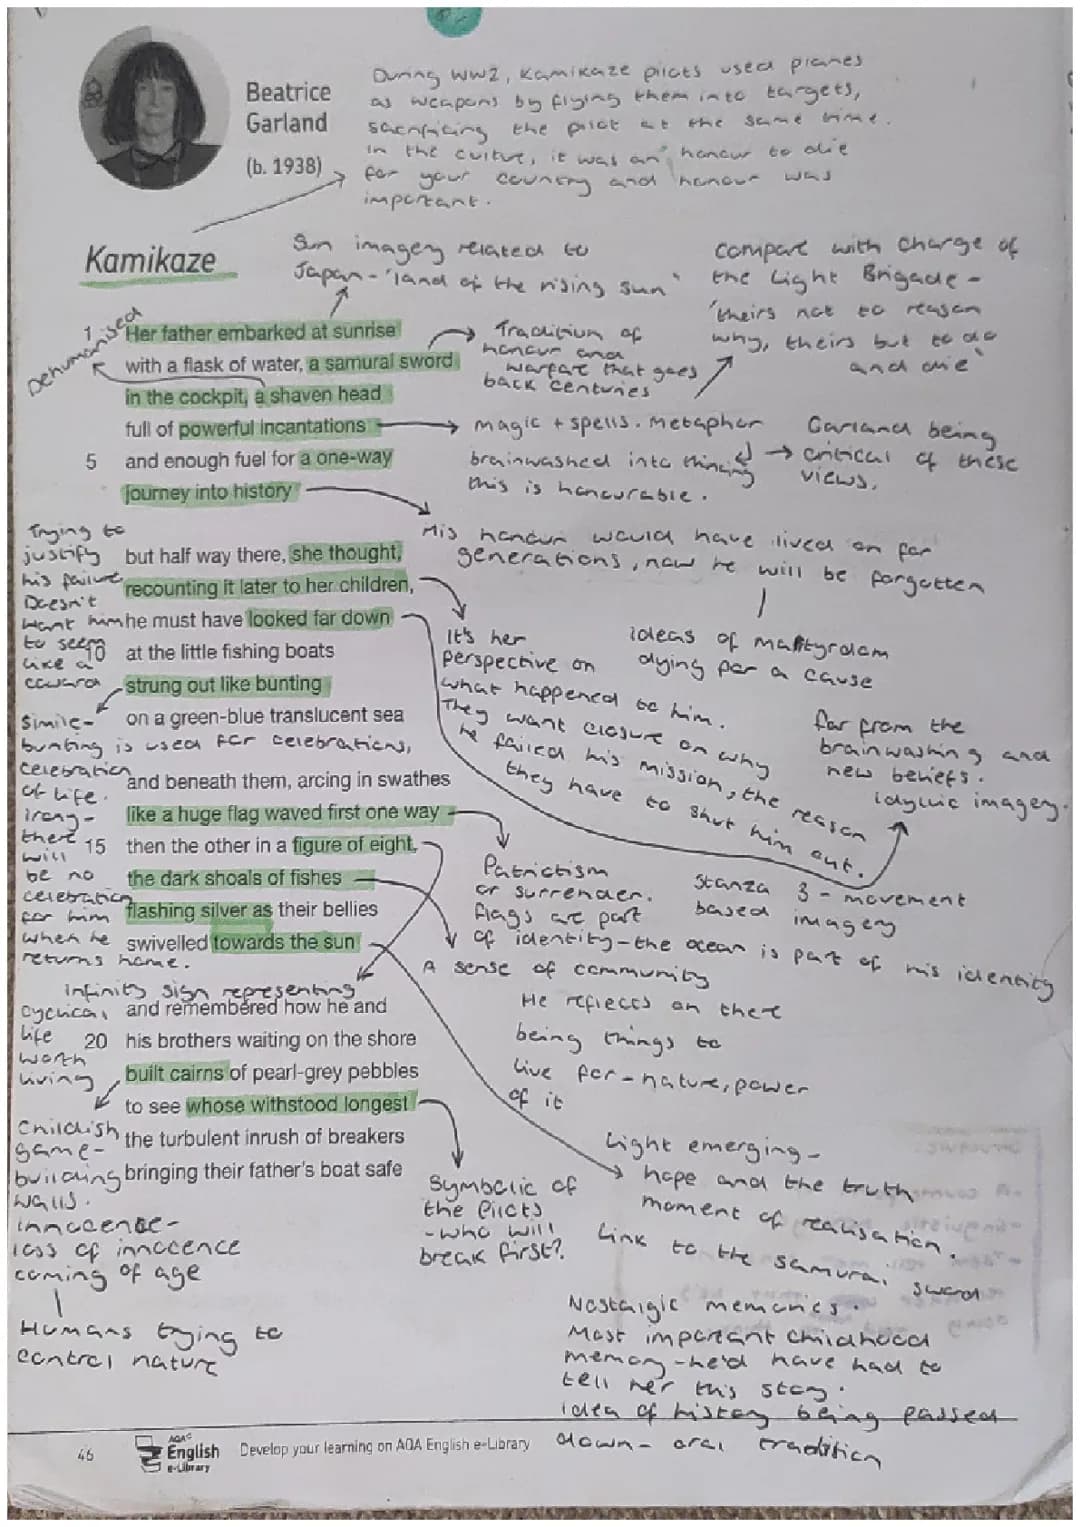 Beatrice
Garland
(b. 1938)
During WW2, Kamikaze pilots used planes
as weapons by flying them into targets,
sacrificing the pilot at the same time.
In the culture, it was an honour to die
for your country and honour was
important.
Kamikaze
Sun imagery related to
Japan - 'land of the rising sun"
compare with charge of
the Light Brigade -
'theirs not to reason
why, theirs but to do
and die'
Dehumanised
1 Her father embarked at sunrise
with a flask of water, a samurai sword
in the cockpit, a shaven head
full of powerful incantations
5 and enough fuel for a one-way
journey into history
Tradition of
honour and
warfare that goes
back centuries
magic + spells. Metaphor
brainwashed into thinking
this is honourable.
Garland being
critical of these
views.
His honour would have lived on for
generations, now he will be forgotten
ideas of martyrdom
dying for a cause
Trying to
justify
his failure
Doesn't
want him
to seem
like a
coward
but half way there, she thought,
recounting it later to her children,
he must have looked far down
10 at the little fishing boats
strung out like bunting
on a green-blue translucent sea
It's her
perspective on
what happened to him.
They want closure on why
he failed his mission, the reason
they have to shut him out.
far from the
brainwashing and
new beliefs.
idyllic imagery.
Simile-
bunting is used for celebrations,
celebration
of life.
irony-
there
will
be no
celebration
for him
when he
returns home.
and beneath them, arcing in swathes
like a huge flag waved first one way
15 then the other in a figure of eight,
the dark shoals of fishes
flashing silver as their bellies
swivelled towards the sun
Patriotism
or surrender.
flags are part
of identity-the ocean is part of his identity
Stanza 3 - movement
based imagery
A sense of community
infinity sign representing
cyclical
life
worth
living
and remembered how he and
20 his brothers waiting on the shore
built cairns of pearl-grey pebbles
to see whose withstood longest
the turbulent inrush of breakers
bringing their father's boat safe
He reflects on there
being things to
live for-nature, power
of it
Childish
game-
building
walls.
innocence-
loss of innocence
coming of age
Humans trying to
control nature
Symbolic of
the pilots
-who will
break first?
Light emerging-
hope and the truth
moment of realisation.
Link to the samurai sword
Nostalgic memories.
Most important childhood
memory-he'd have had to
tell her this story.
idea of history being passed
down- oral tradition
46
AQA
English
e-Library
Develop your learning on AQA English e-Library